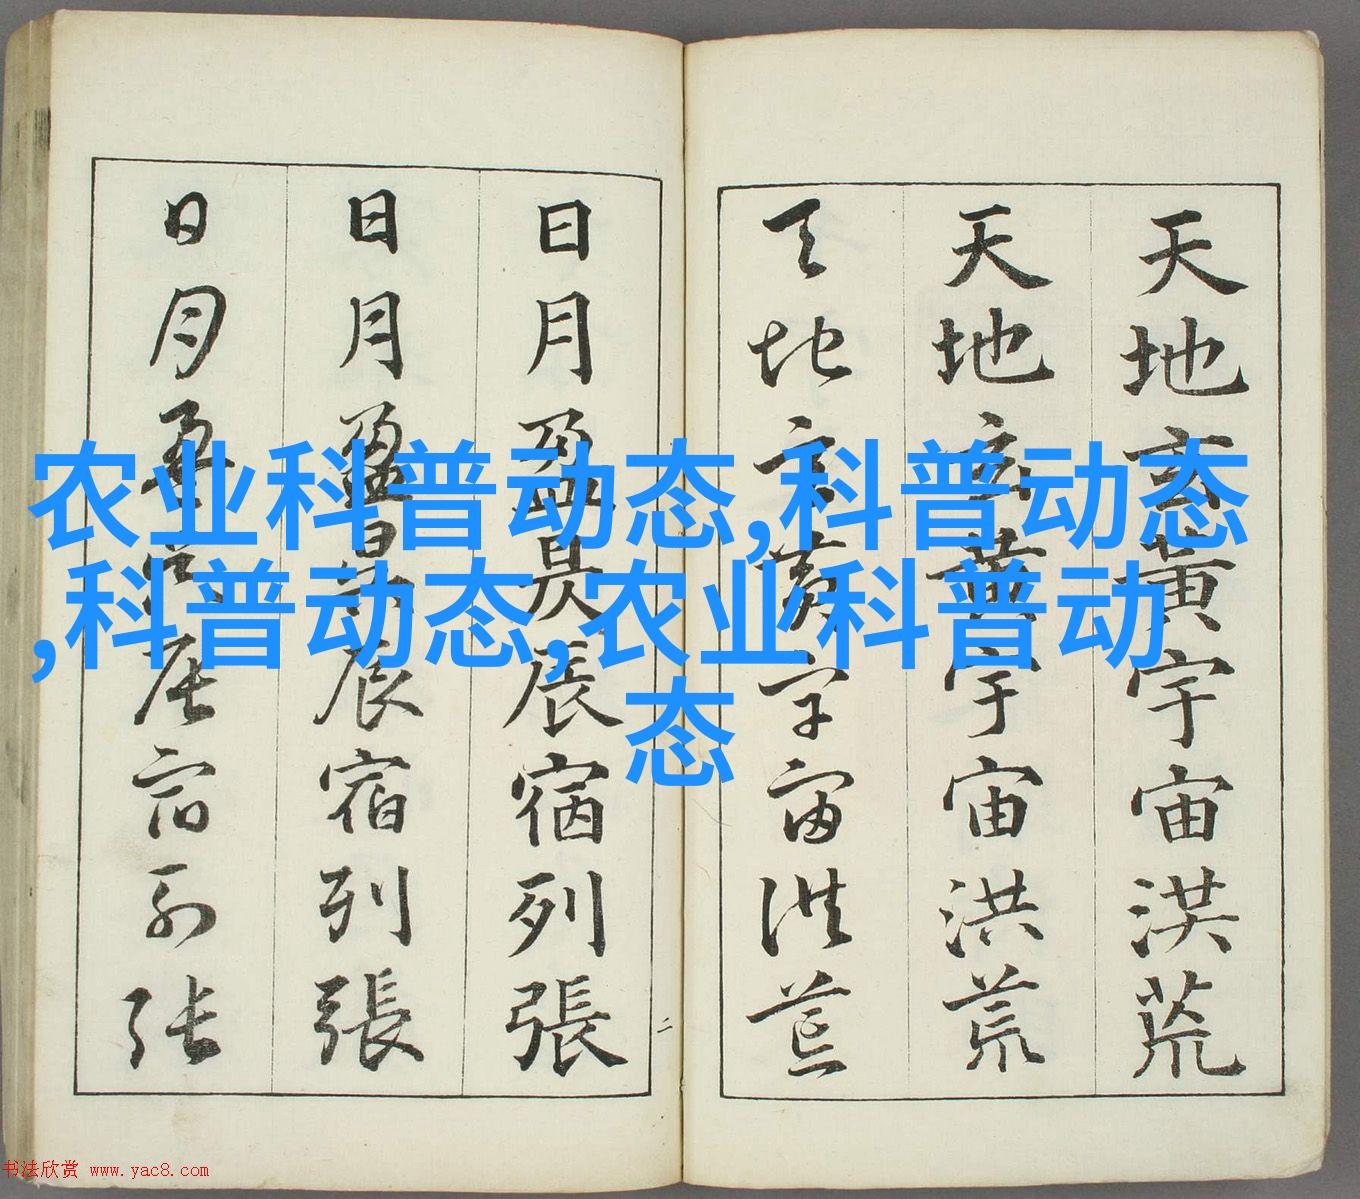 天地玄黃宇宙洪荒
天地玄黃宇宙洪荒
天地玄黃宇宙洪荒
日月盈昃辰宿列張
日月盈昃辰宿列張
日月盈昃辰宿列張
二
农业科普动态,科普动态
,科普动态,农业科普动
态
书法欣赏 www.yac8.com